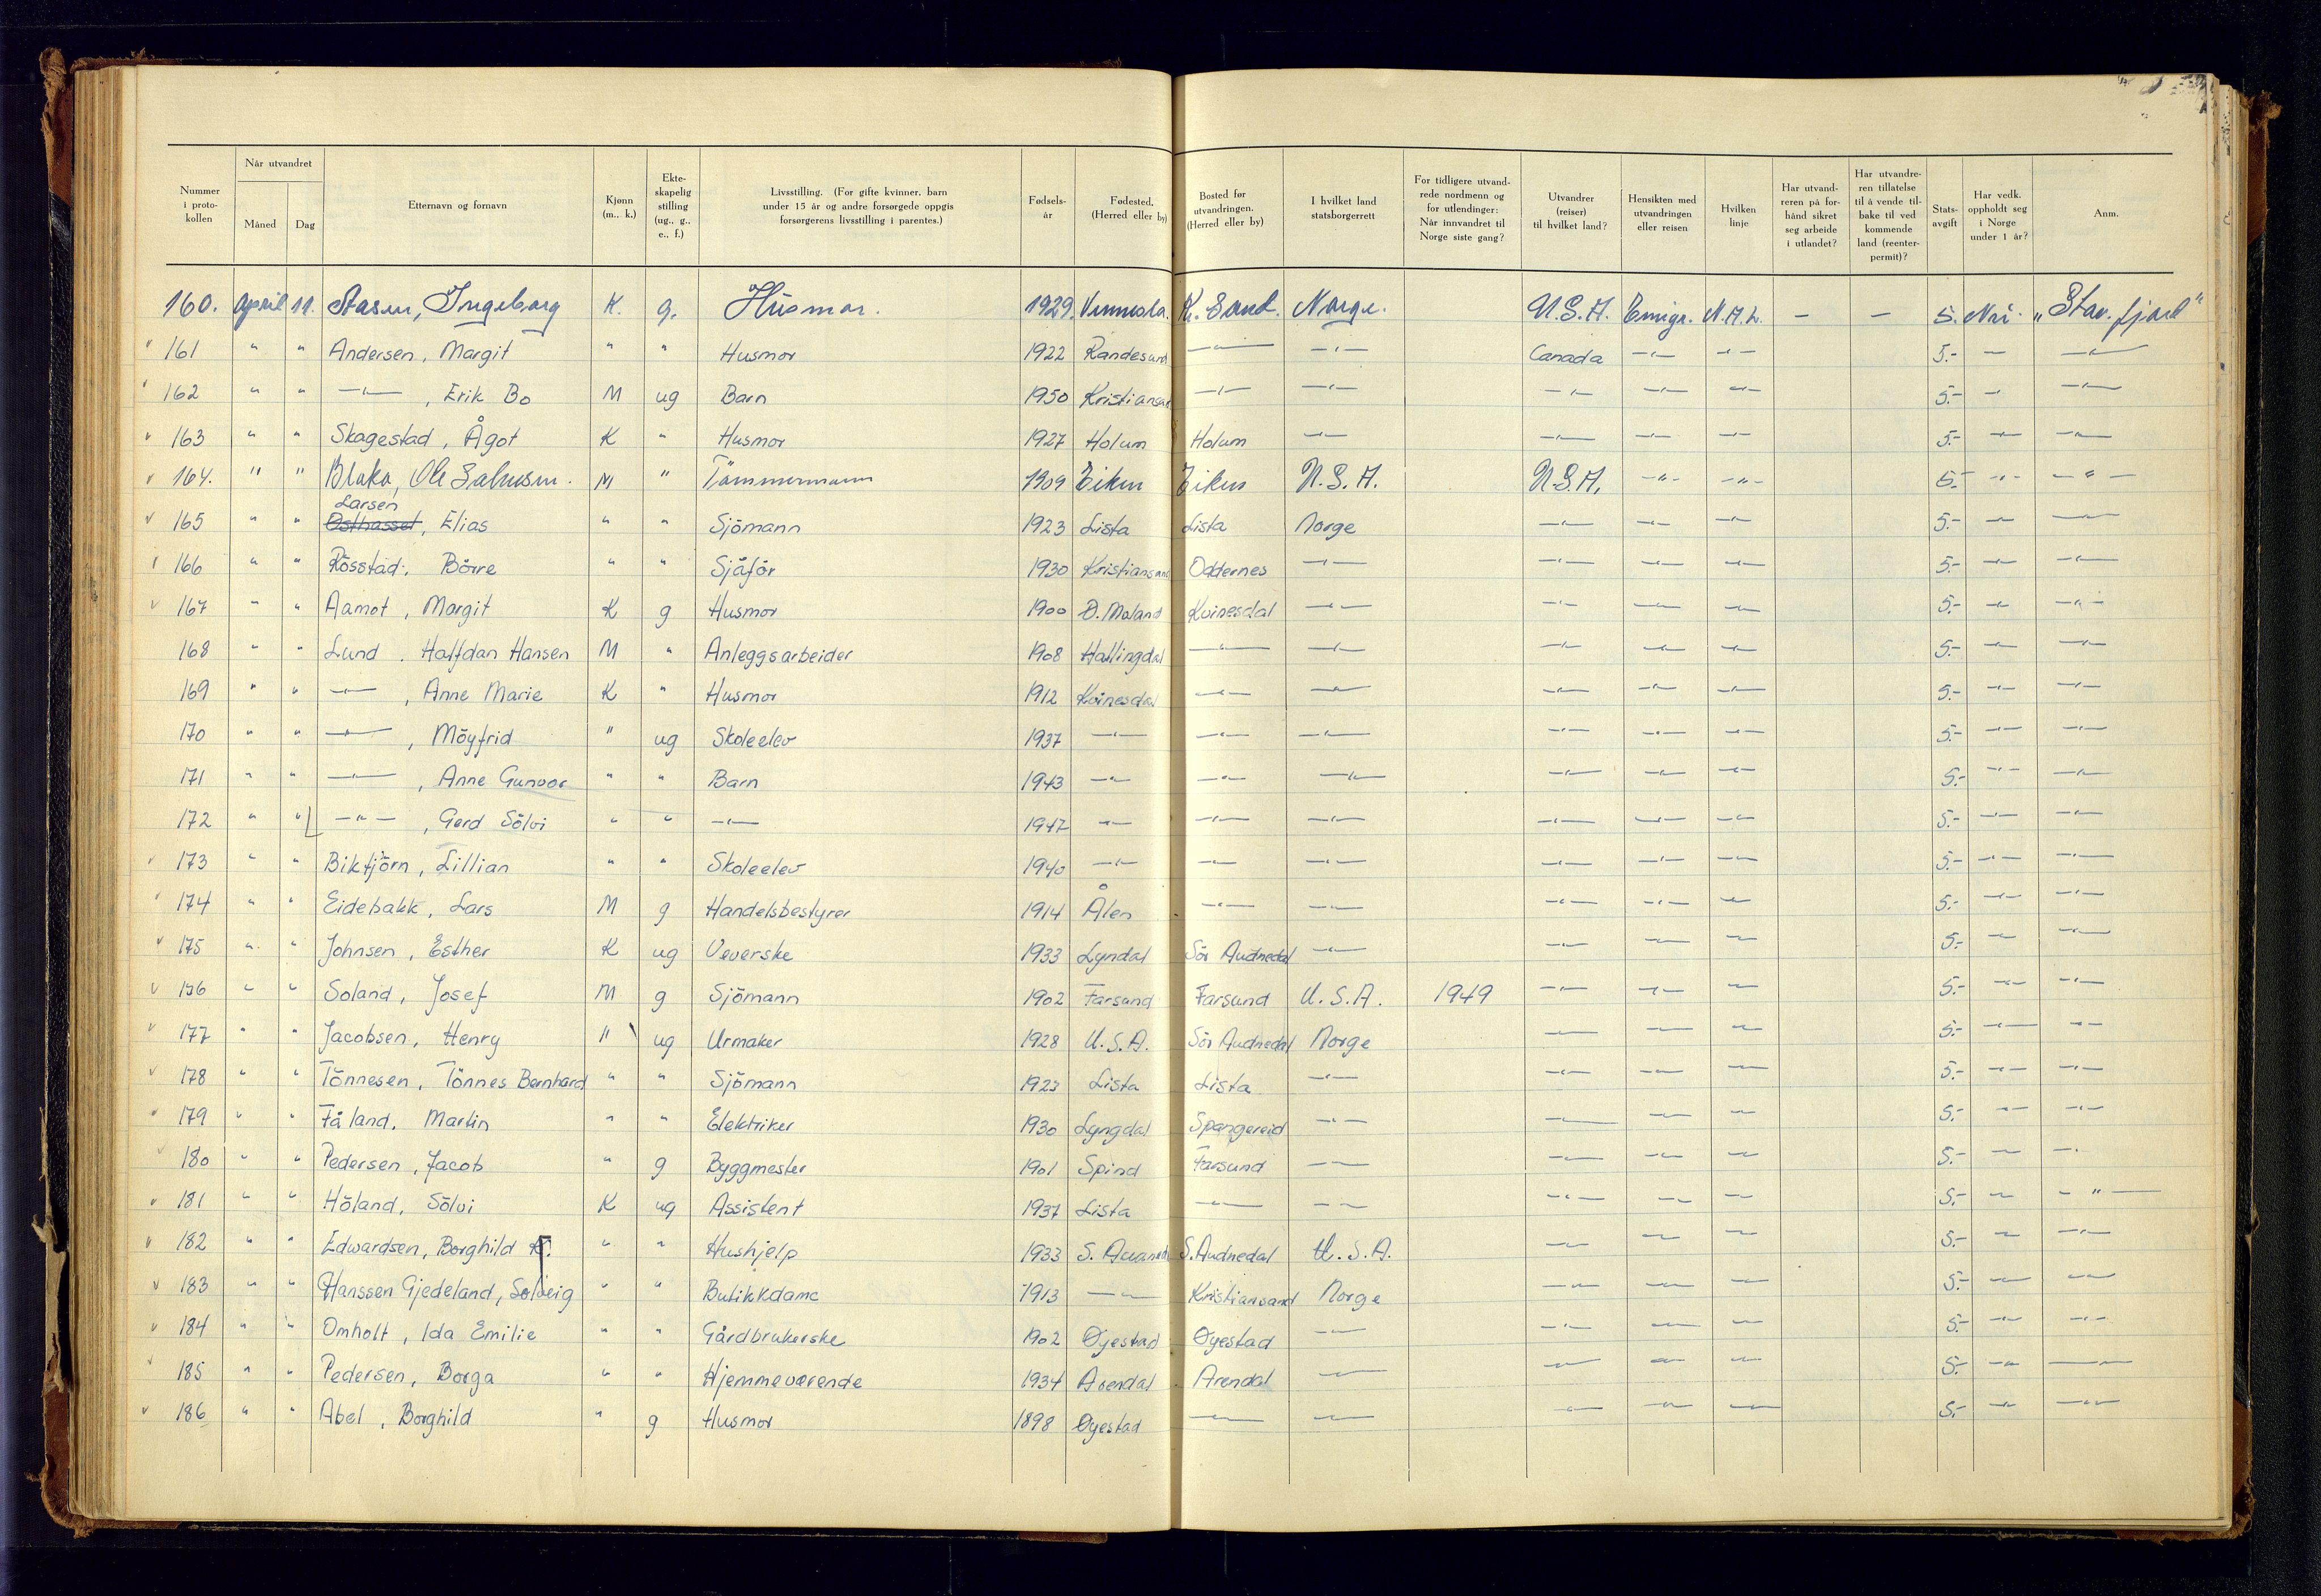 Nummer i proto- kollen | Når utvandret Måned | Dag | Etternavn og fornavn | Kjønn (m., k.) | Ekte- skapelig stilling (ug., g., e., f.) | Livsstilling. (For gifte kvinner, barn under 15 år og andre forsørgede oppgis forsørgerens livsstilling i parentes.) | Fødsels- år | Fødested. (Herred eller by) | Bosted før utvandringen. (Herred eller by) | I hvilket land statsborgerrett | For tidligere utvand- rede nordmenn og for utlendinger: Når innvandret til Norge siste gang? | Utvandrer (reiser) til hvilket land? | Hensikten med utvandringen eller reisen | Hvilken linje | Har utvand- reren på for- hånd sikret seg arbeide i utlandet? | Har utvandre- ren tillatelse til å vende til- bake til ved kommende land (reenter- permit)? | Stats- avgift | Har vedk. oppholdt seg i Norge under 1 år? | Anm.
160. April 11. Aasen, Ingeborg K. g. Husmor. 1929. Vennesla. Kr. Sand. Norge. U.S.A. Emigr. N.A.L. – – 5. Nei. „Stav. fjord"
161 " " Andersen, Margit " " Husmor 1922 Randesund —"— —"— Canada —"— —"— 5.- — —"—
162 " " —"—, Erik Bo M ug Barn 1950 Kristiansand —"— —"— —"— —"— —"— 5.- —"— —"—
163 " " Skagestad, Ågot K " Husmor 1927 Holum Holum —"— —"— —"— —"— 5.- —"— —"—
164. " " Blaka, Ole Salvesen. M " Tömmermann 1909 Eiken Eiken U.S.A. U.S.A. —"— —"— 5.- —"— —"—
Larsen
165 " " Østhasset, Elias " " Sjömann 1923 Lista Lista Norge —"— —"— —"— 5.- —"— —"—
166 " " Rösstad, Börre " " Sjåför 1930 Kristiansand Oddernes —"— —"— —"— —"— 5.- —"— —"—
167 " " Aamot, Margit K g Husmor 1900 Ö. Moland Kvinesdal —"— —"— —"— —"— 5.- —"— —"—
168 " " Lund, Halfdan Hansen M " Anleggsarbeider 1908 Hallingdal —"— —"— —"— —"— —"— 5.- —"— —"—
169 " " —"—, Anne Marie K " Husmor 1912 Kvinesdal —"— —"— —"— —"— —"— 5.- —"— —"—
170 " " —"—, Möyfrid " ug Skoleelev 1937 —"— —"— —"— —"— —"— —"— 5.- —"— —"—
171 " " —"—, Anne Gunvor " " Barn 1943 —"— —"— —"— —"— —"— —"— 5.- —"— —"—
172 " " —"—, Gerd Sölvi " " —"— 1947 —"— —"— —"— —"— —"— —"— 5.- —"— —"—
173 " " Biktjörn, Lillian " " Skoleelev 1940 —"— —"— —"— —"— —"— —"— 5.- —"— —"—
174 " " Eidebakk, Lars M g Handelsbestyrer 1914 Ålen —"— —"— —"— —"— —"— 5.- —"— —"—
175 " " Johnsen, Esther K ug Veverske 1933 Lyndal Sör Audnedal —"— —"— —"— —"— 5.- —"— —"—
176 " " Soland, Josef M g Sjömann 1902 Farsund Farsund U.S.A. 1949 —"— —"— —"— 5.- —"— —"—
177 " " Jacobsen, Henry " ug Urmaker 1928 U.S.A. Sör Audnedal Norge —"— —"— —"— 5.- —"— —"—
178 " " Tönnesen, Tönnes Bernhard " " Sjömann 1923 Lista Lista —"— —"— —"— —"— 5.- —"— —"—
179 " " Fåland, Martin " " Elektriker 1930 Lyngdal Spangereid —"— —"— —"— —"— 5.- —"— —"—
180 " " Pedersen, Jacob " g Byggmester 1901 Spind Farsund —"— —"— —"— —"— 5.- —"— —"—
181 " " Höland, Sölvi K ug Assistent 1937 Lista —"— —"— —"— —"— —"— 5.- —"— —"—
182 " " Edwardsen, Borghild K. " " Hushjelp 1933 S. Audnedal S. Audnedal U.S.A. —"— —"— —"— 5.- —"— —"—
183 " " Hanssen Gjedeland, Solveig " " Butikkdame 1913 —"— Kristiansand Norge —"— —"— —"— 5.- —"— —"—
184 " " Omholt, Ida Emilie " " Gårdbrukerske 1902 Øyestad Øyestad —"— —"— —"— —"— 5.- —"— —"—
185 " " Pedersen, Borga " " Hjemmeværende 1934 Arendal Arendal —"— —"— —"— —"— 5.- —"— —"—
186 " " Abel, Borghild " g Husmor 1898 Øyestad —"— —"— —"— —"— —"— 5.- —"— —"—